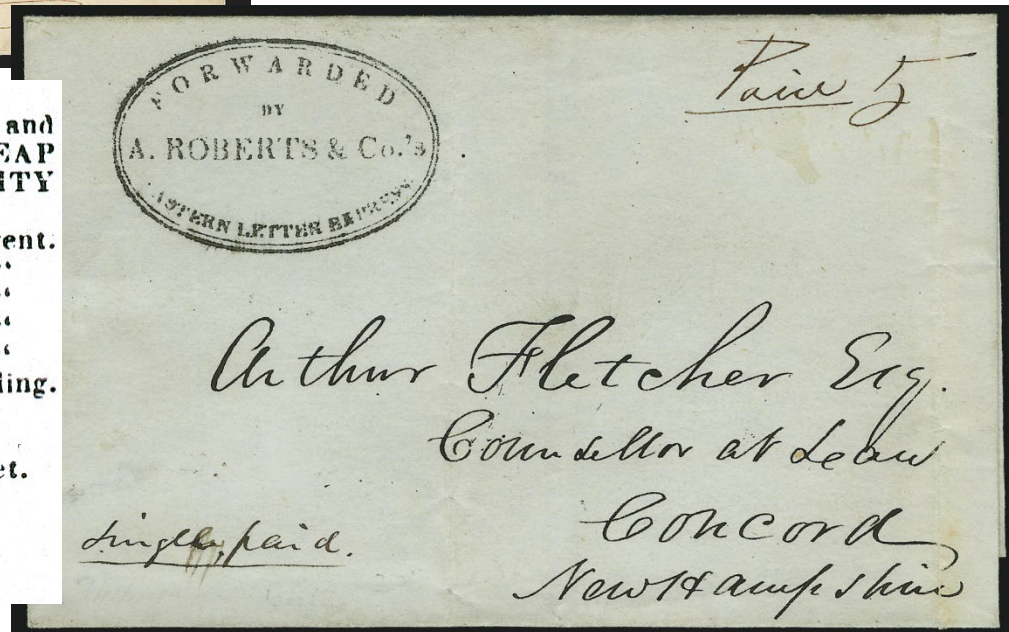 and
EAP
ITY
ent.
"
"
"
"
ling.
et.
FORWARDED
BY
A. ROBERTS & Co.'s
ASTERN LETTER EXPRESS
Paid 5
Arthur Fletcher Esq.
Counsellor at Law
Concord
New Hampshire
Single, paid.